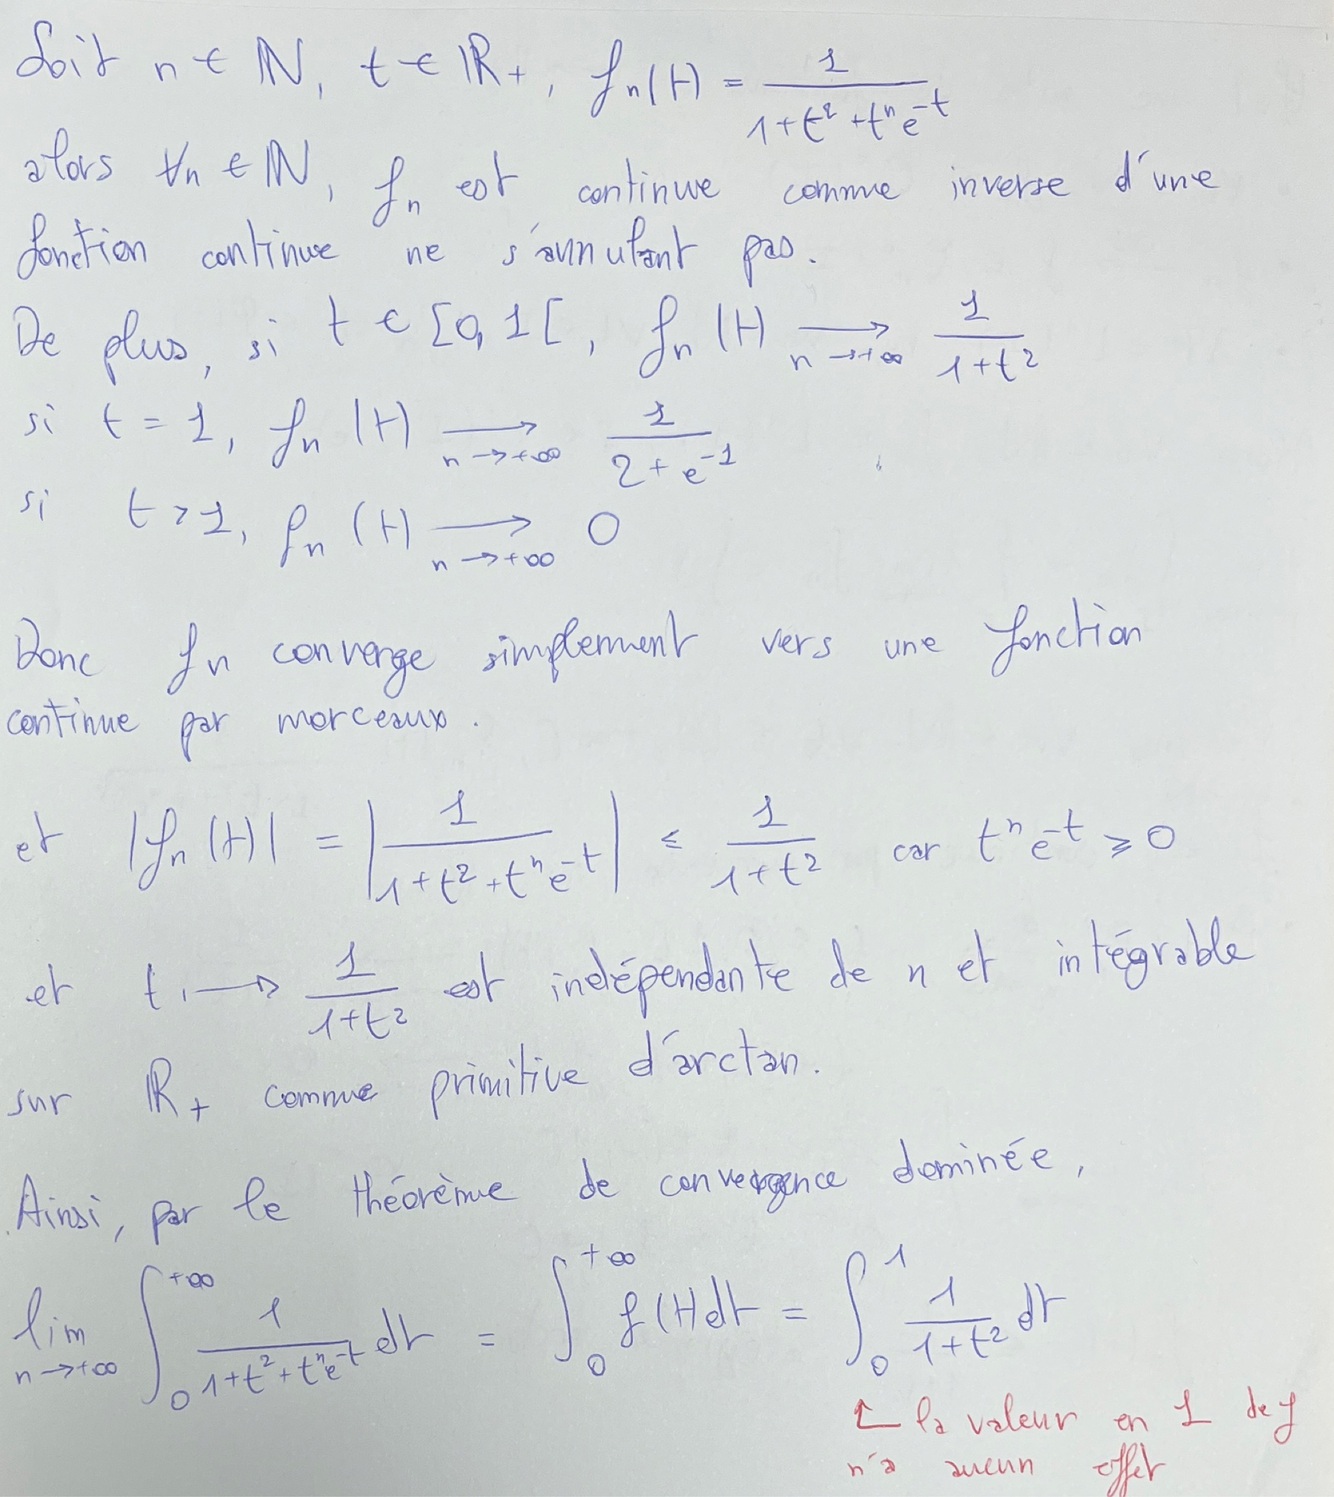 Soit n ∈ ℕ, t ∈ ℝ+, fn(t) = 1/(1+t²+tⁿe⁻ᵗ)
alors ∀n ∈ ℕ, fn est continue comme inverse d'une
fonction continue ne s'annulant pas.
De plus, si t ∈ [0,1[, fn(t) ⟶ (n→+∞) 1/(1+t²)
si t = 1, fn(t) ⟶ (n→+∞) 1/(2+e⁻¹)
si t > 1, fn(t) ⟶ (n→+∞) 0
Donc fn converge simplement vers une fonction
continue par morceaux.
et |fn(t)| = |1/(1+t²+tⁿe⁻ᵗ)| ≤ 1/(1+t²) car tⁿe⁻ᵗ ≥ 0
et t ⟼ 1/(1+t²) est indépendante de n et intégrable
sur ℝ+ comme primitive d'arctan.
Ainsi, par le théorème de convergence dominée,
lim (n→+∞) ∫₀^{+∞} 1/(1+t²+tⁿe⁻ᵗ) dt = ∫₀^{+∞} f(t)dt = ∫₀¹ 1/(1+t²) dt
↑ la valeur en 1 de f
n'a aucun effet